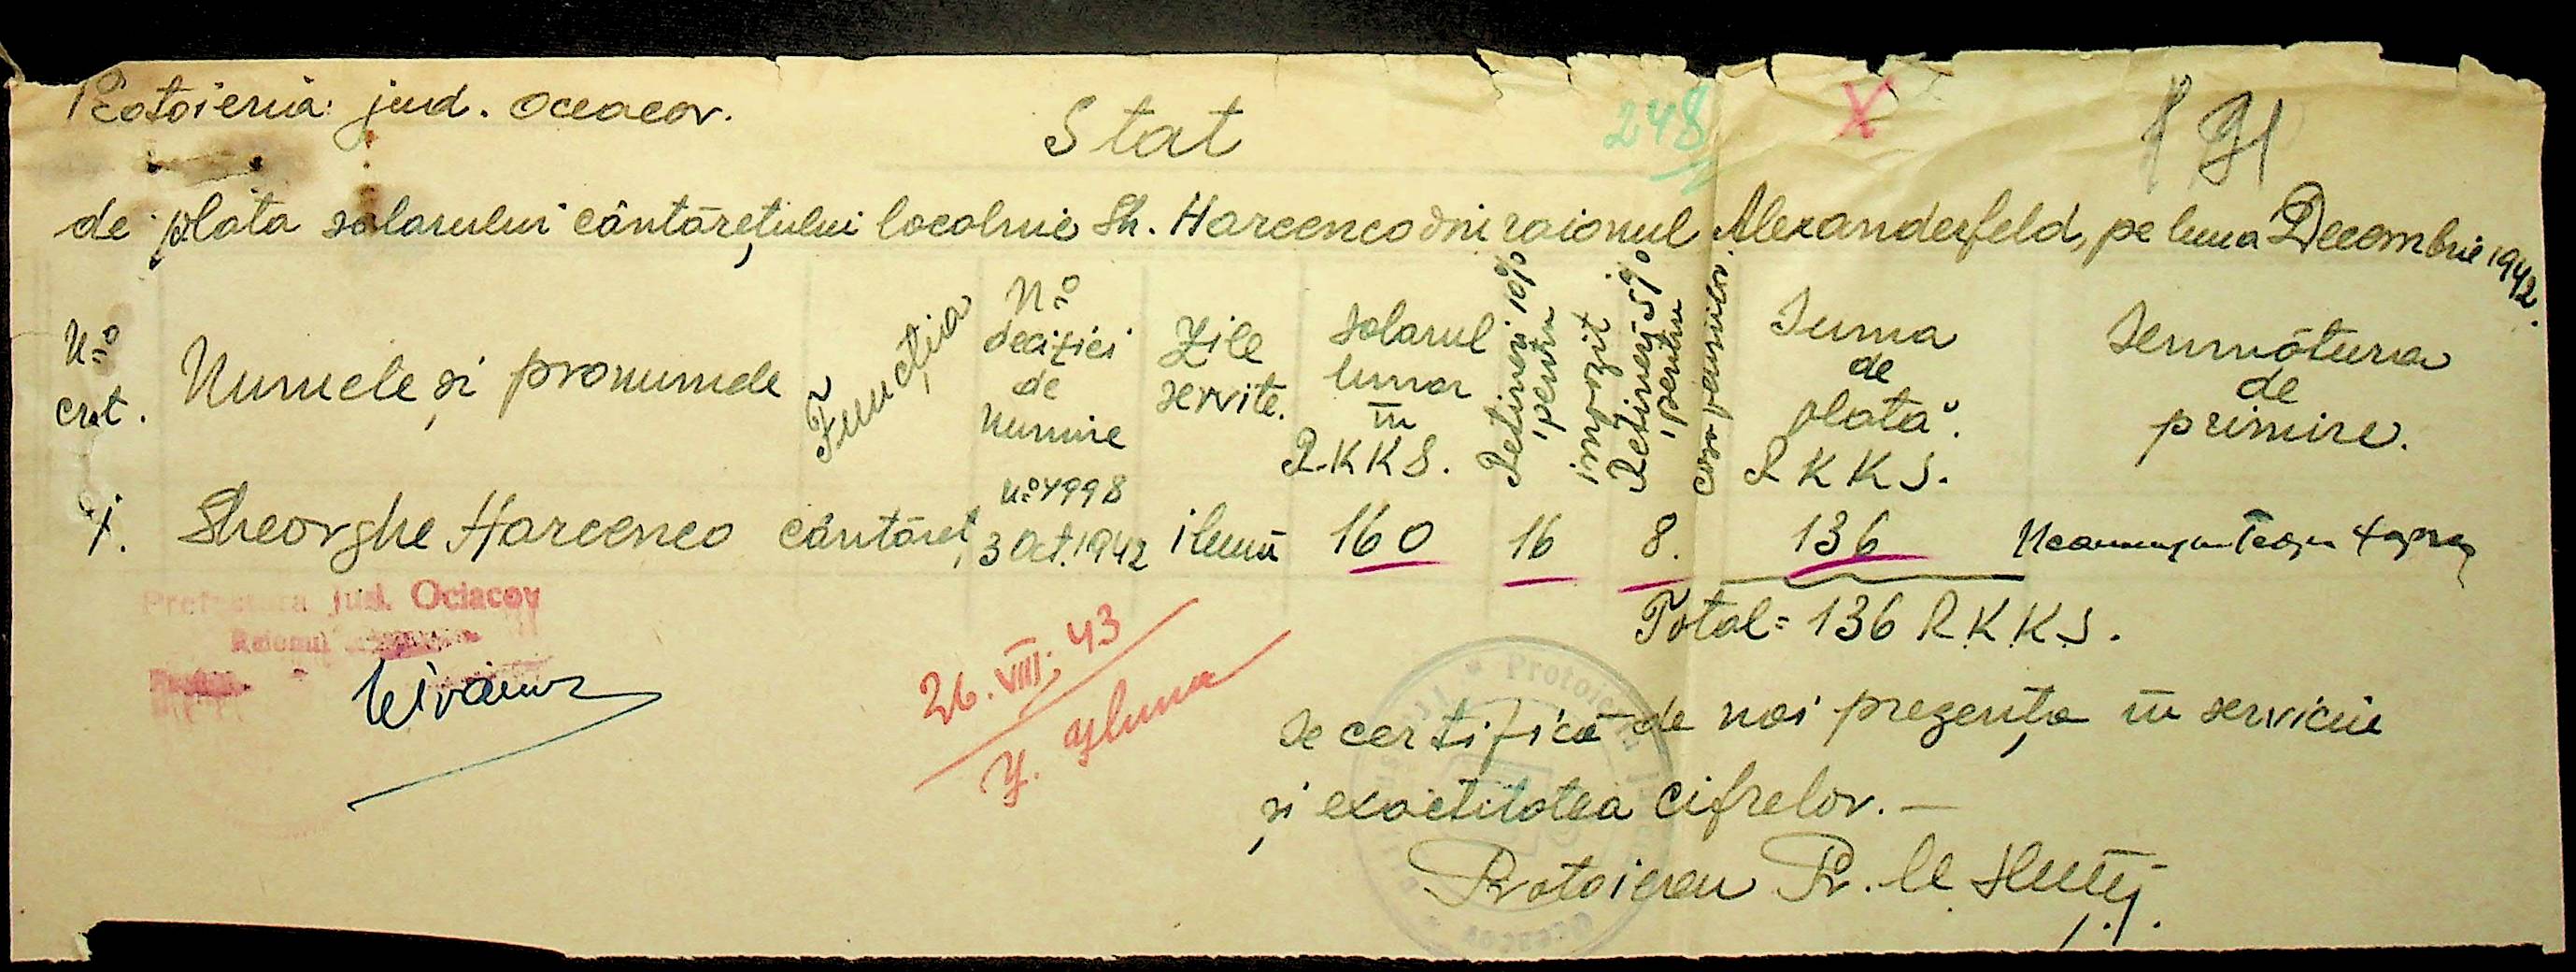 Protoieria jud. Oceacov.
Stat
248
X
de plata salarului cântărețului localnic Gh. Harcenco din raionul Alexanderfeld, pe luna Decembrie 1942.
No crt.
Numele și pronumele
Funcția
No deciziei de numire
Zile servite.
Salarul lunar în R.K.K.S.
Rețineri 10% pentru impozit
Rețineri 5% pentru casa pensiilor.
Suma de plată.
R K K S.
Semnătura de primire.
1. Gheorghe Harcenco cântăreț, No 4998 3 Oct. 1942 1 lună 160 16 8. 136
Total = 136 R.K.K.S.
Prefectura jud. Ociacov
Raionul
26.VIII.43
Se certifică de noi prezența în serviciu
și exactitatea cifrelor. —
Protoiereu Pr.